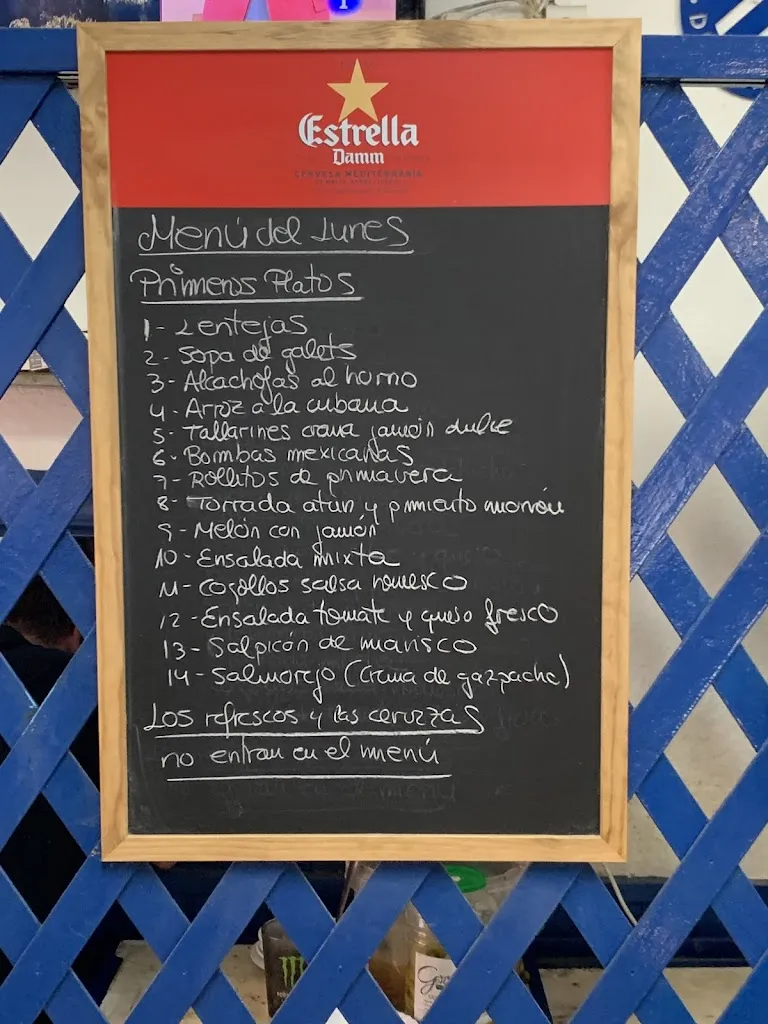 Estrella
Damm
CERVEZA MEDITERRÁNEA
Menú del Lunes
Primeros Platos
1- Lentejas
2- Sopa de galets
3- Alcachofas al horno
4- Arroz a la cubana
5- Tallarines crema jamón dulce
6- Bombas mexicanas
7- Rollitos de primavera
8- Torrada atun y pimiento morrón
9- Melón con jamón
10- Ensalada mixta
11- Cogollos salsa romesco
12- Ensalada tomate y queso fresco
13- Salpicón de marisco
14- Salmorejo (Crema de gazpacho)
Los refrescos y las cervezas
no entran en el menú